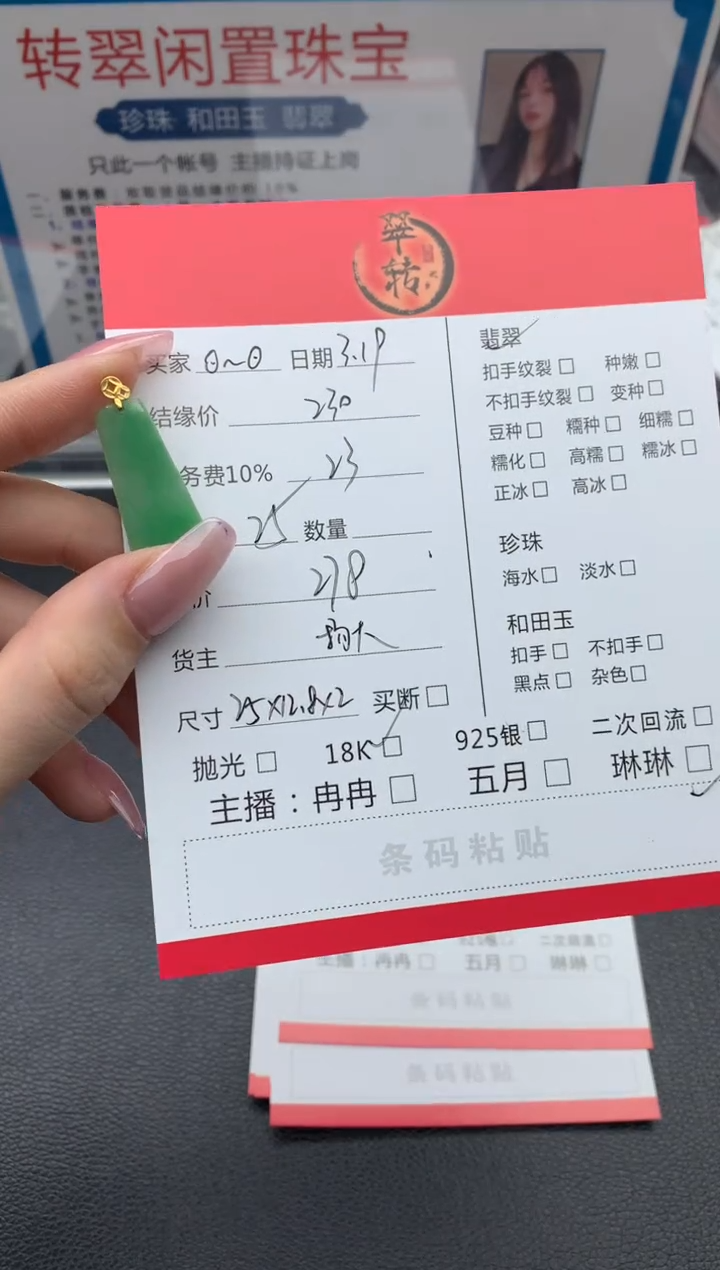 转翠闲置珠宝
珍珠 和田玉 翡翠
只此一个帐号 主播持证上岗
翠转
买家 0~0 日期 3.19
结缘价 230
务费10% 23
25 数量
价 278
货主
尺寸 25×12.8×2 买断
抛光 18K 925银 二次回流
主播：冉冉 五月 琳琳
条码粘贴
翡翠
扣手纹裂 种嫩
不扣手纹裂 变种
豆种 糯种 细糯
糯化 高糯 糯冰
正冰 高冰
珍珠
海水 淡水
和田玉
扣手 不扣手
黑点 杂色
925银 二次回流
主播：冉冉 五月 琳琳
条码粘贴
条码粘贴